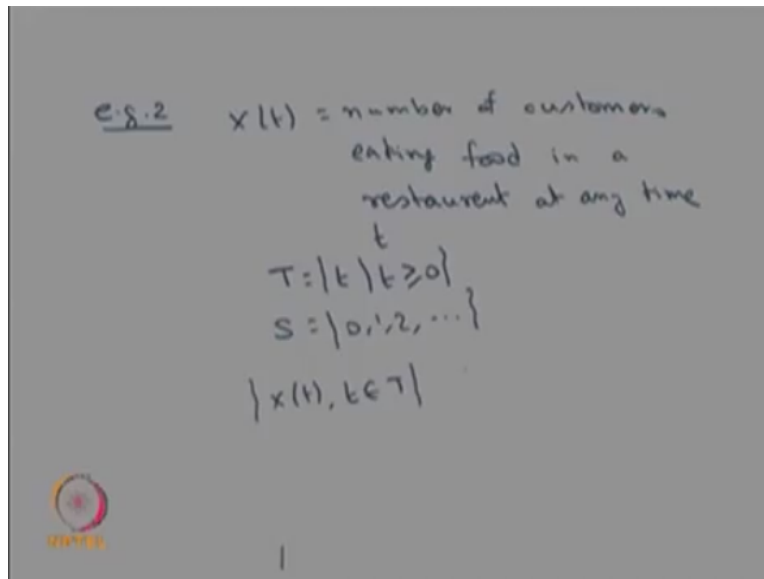 e.g.2 X(t) = number of customers
eating food in a
restaurent at any time
t
T = {t | t ≥ 0}
S = {0, 1, 2, ...}
{X(t), t ∈ T}
NPTEL